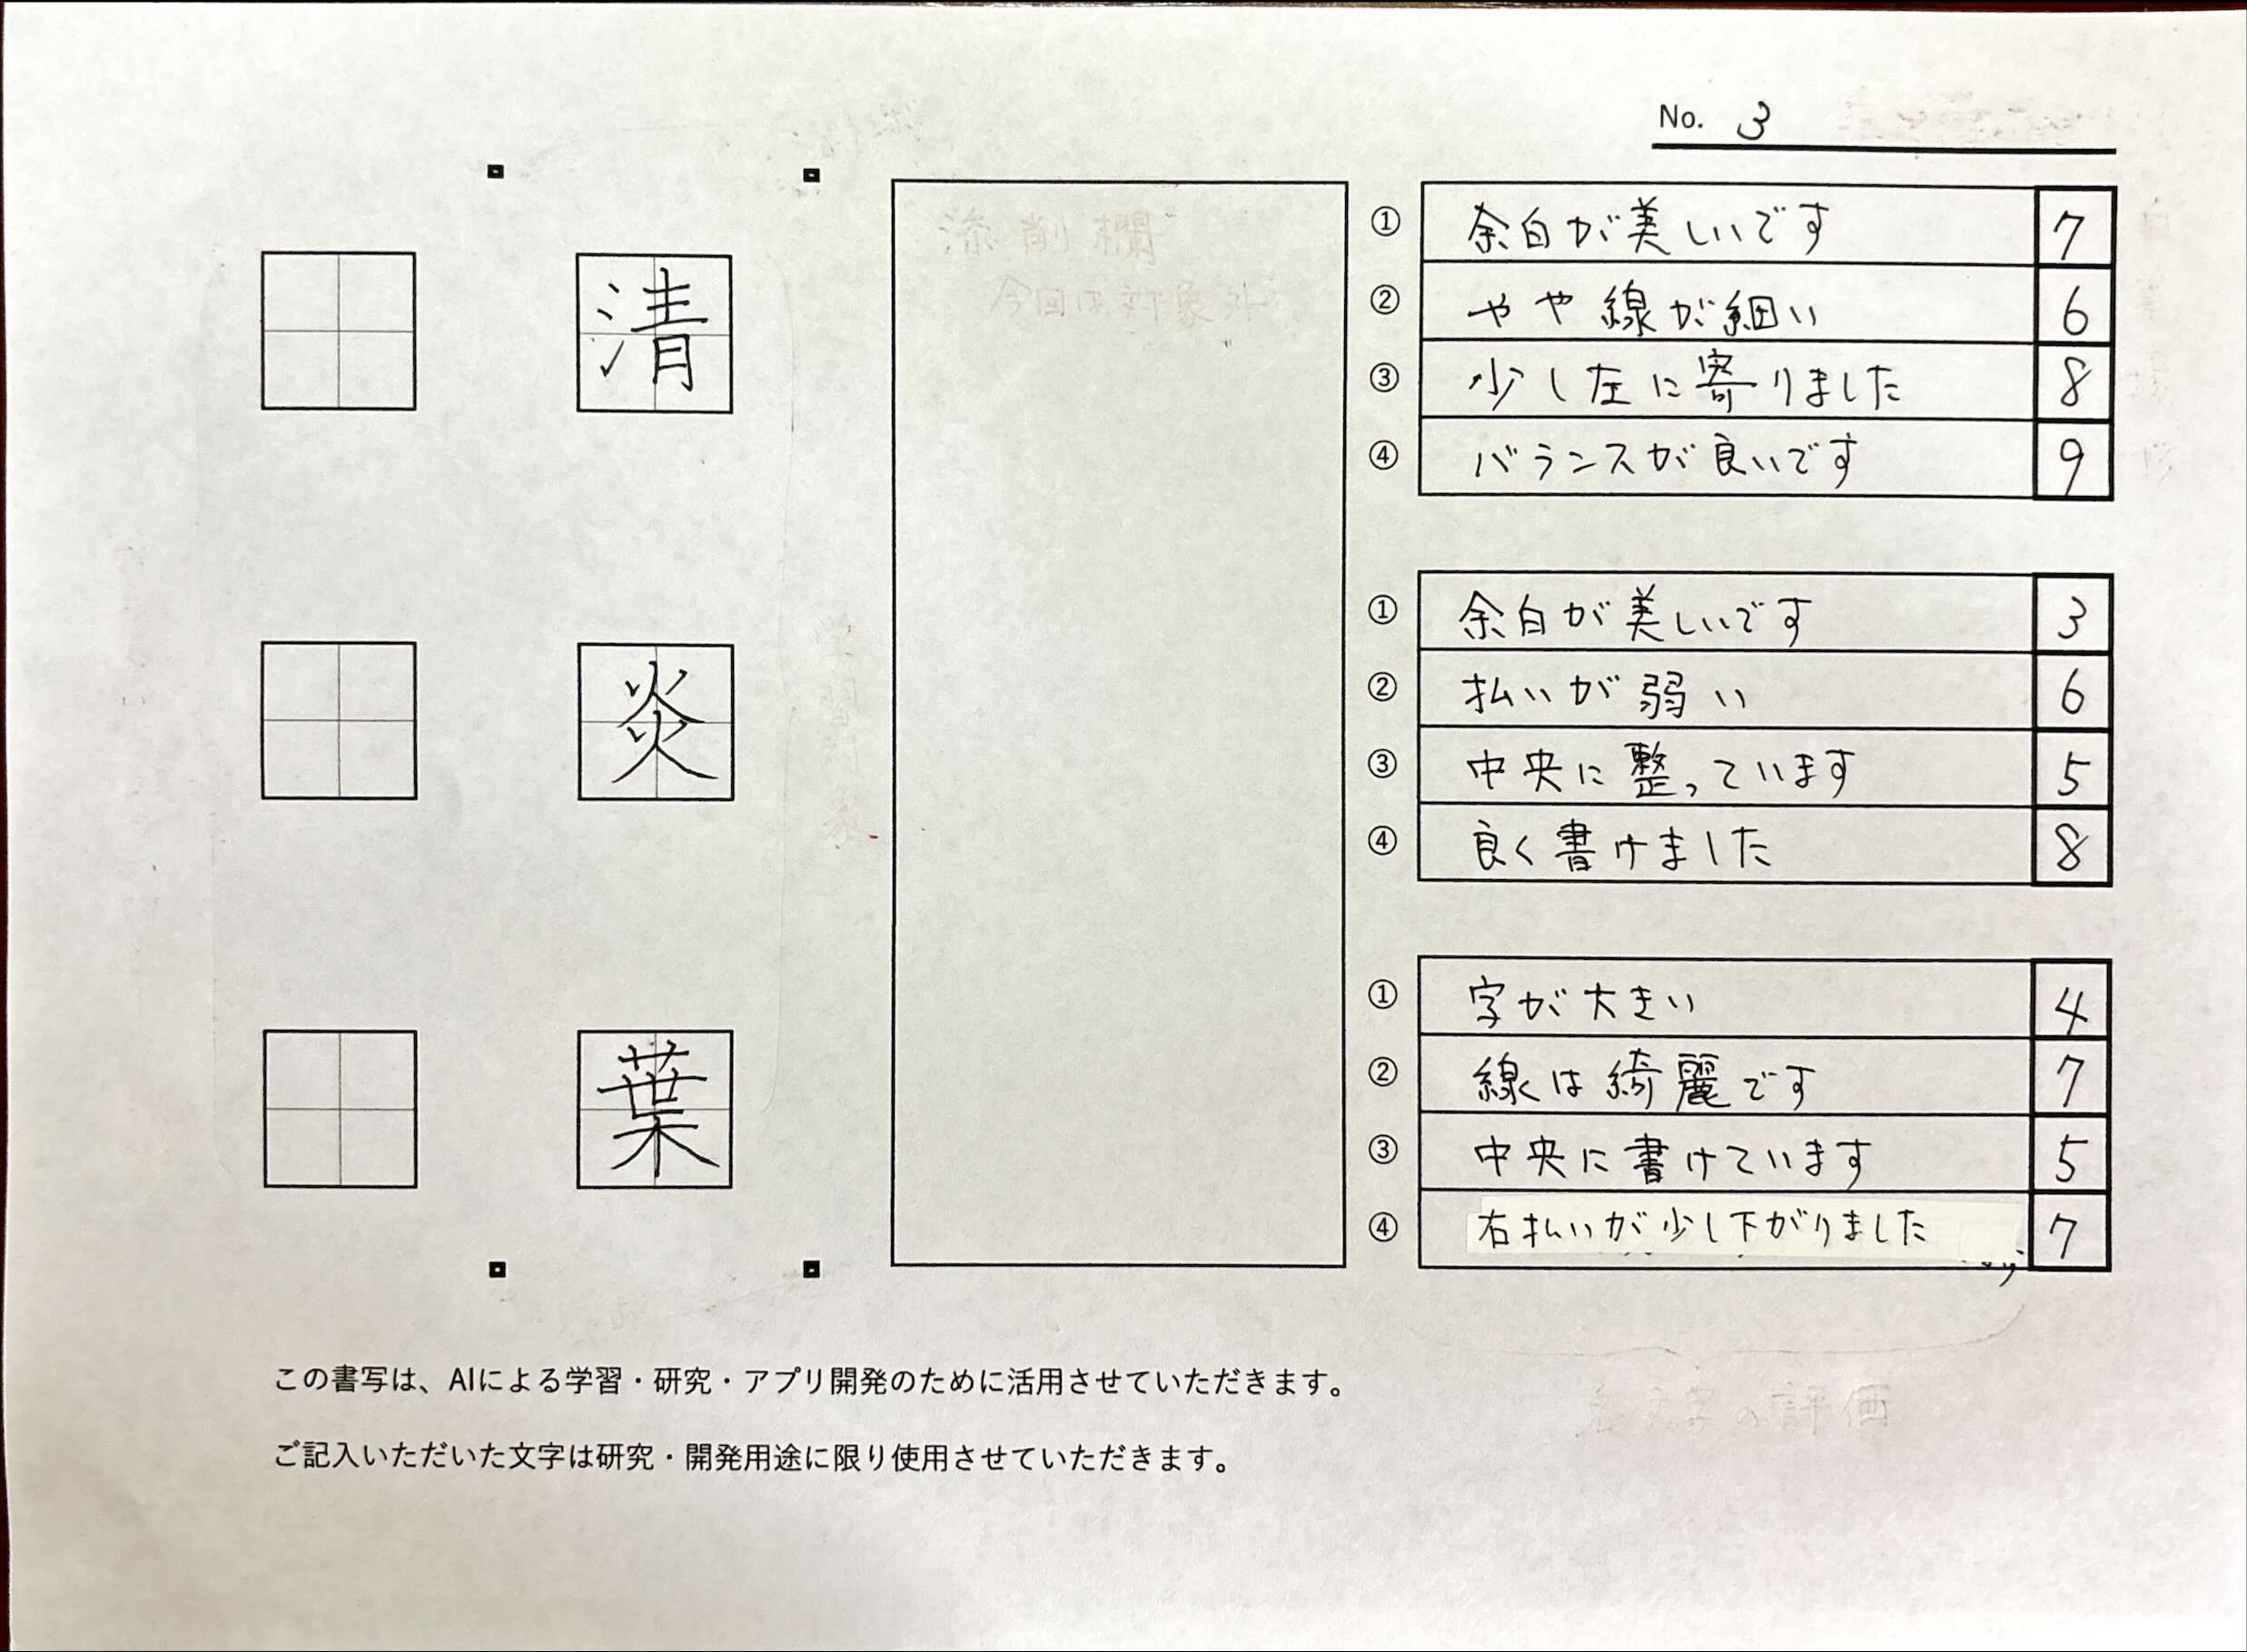 No. 3
清
炎
葉
添削欄
今回は対象外
① 余白が美しいです 7
② やや線が細い 6
③ 少し左に寄りました 8
④ バランスが良いです 9
① 余白が美しいです 3
② 払いが弱い 6
③ 中央に整っています 5
④ 良く書けました 8
① 字が大きい 4
② 線は綺麗です 7
③ 中央に書けています 5
④ 右払いが少し下がりました 7
この書写は、AIによる学習・研究・アプリ開発のために活用させていただきます。
ご記入いただいた文字は研究・開発用途に限り使用させていただきます。